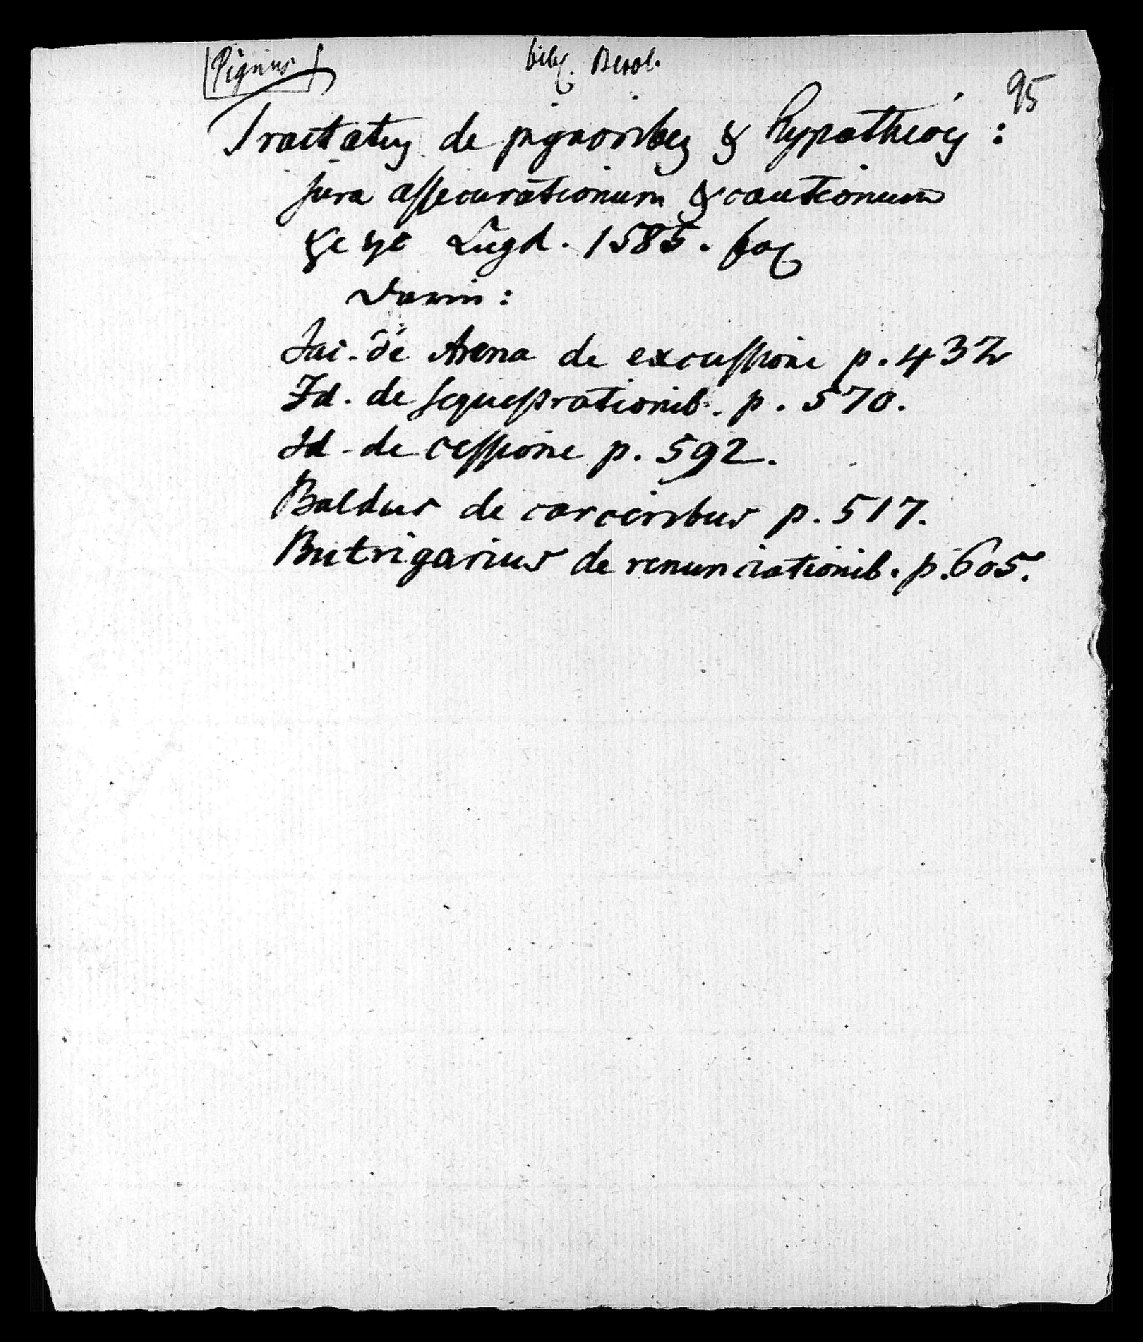 Pignus bibl. Berol.
95
Tractatus de pignoribus & hypothecis:
jura assecurationum & cautionum
&c &c Lugd. 1585. fol
Darin:
Jac. de Arena de excussione p. 432
Id. de sequestrationib. p. 570.
Id. de cessione p. 592.
Baldus de carceribus p. 517.
Butrigarius de renunciationib. p. 605.